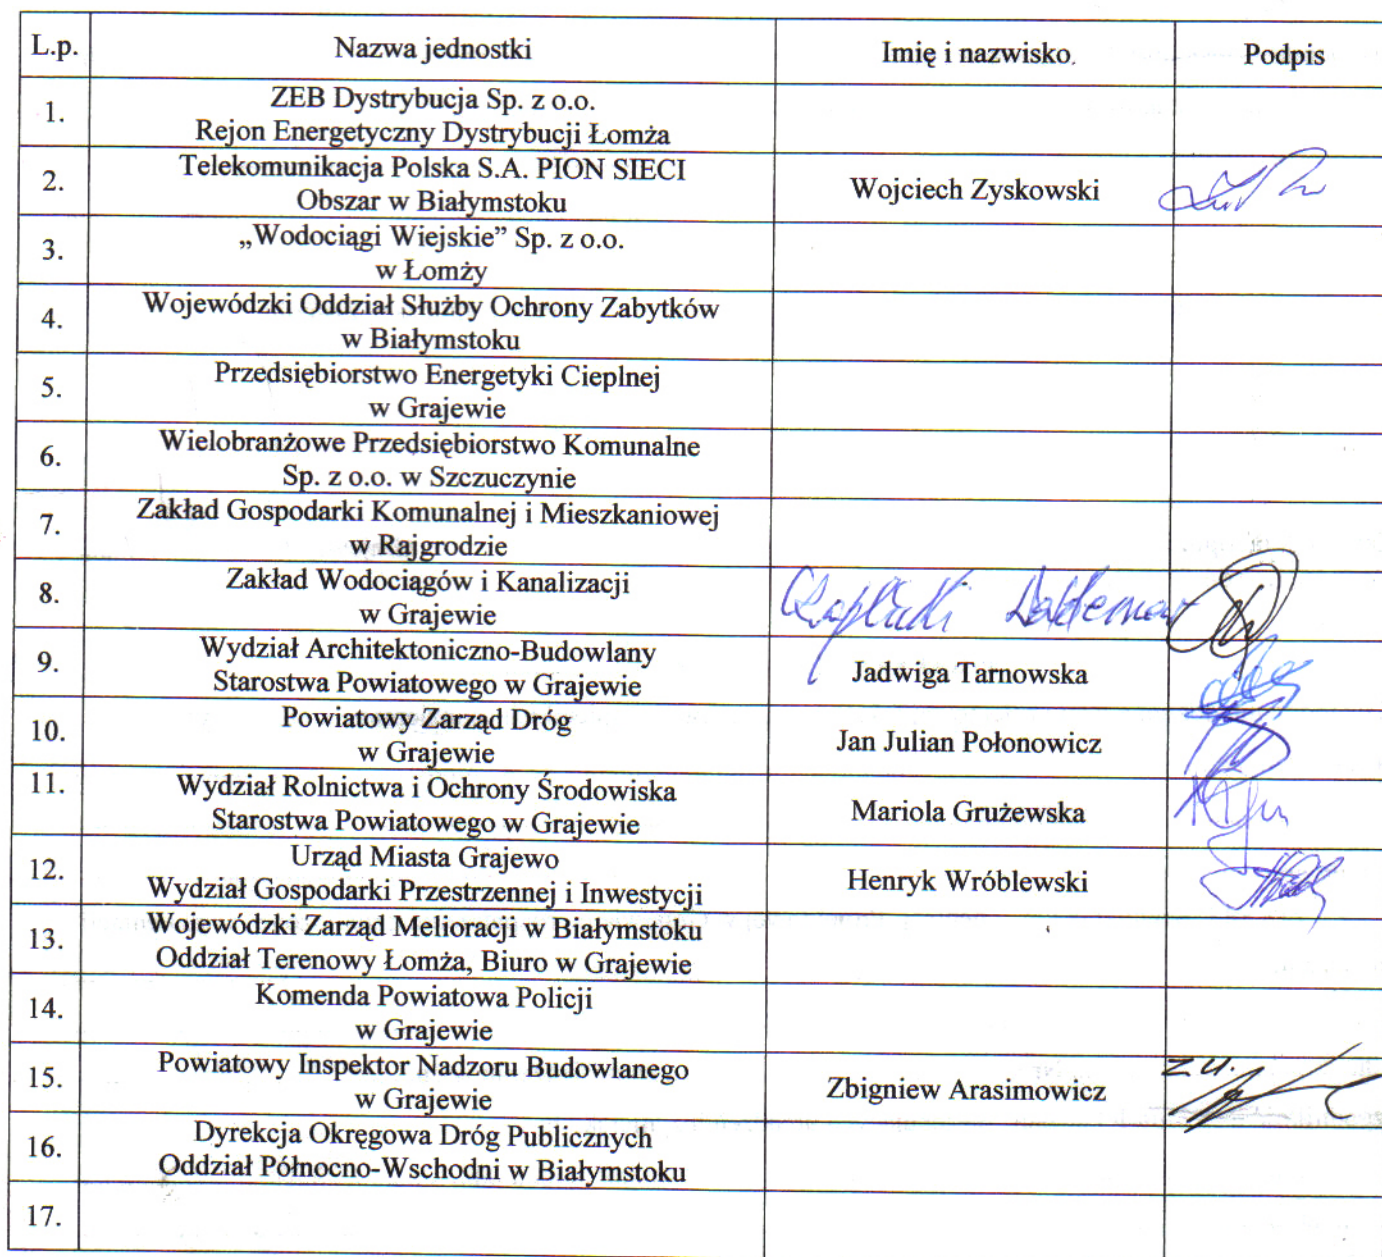 L.p. Nazwa jednostki Imię i nazwisko. Podpis
1. ZEB Dystrybucja Sp. z o.o.
Rejon Energetyczny Dystrybucji Łomża
2. Telekomunikacja Polska S.A. PION SIECI
Obszar w Białymstoku
Wojciech Zyskowski
3. „Wodociągi Wiejskie” Sp. z o.o.
w Łomży
4. Wojewódzki Oddział Służby Ochrony Zabytków
w Białymstoku
5. Przedsiębiorstwo Energetyki Cieplnej
w Grajewie
6. Wielobranżowe Przedsiębiorstwo Komunalne
Sp. z o.o. w Szczuczynie
7. Zakład Gospodarki Komunalnej i Mieszkaniowej
w Rajgrodzie
8. Zakład Wodociągów i Kanalizacji
w Grajewie
Waldemar
9. Wydział Architektoniczno-Budowlany
Starostwa Powiatowego w Grajewie
Jadwiga Tarnowska
10. Powiatowy Zarząd Dróg
w Grajewie
Jan Julian Połonowicz
11. Wydział Rolnictwa i Ochrony Środowiska
Starostwa Powiatowego w Grajewie
Mariola Grużewska
12. Urząd Miasta Grajewo
Wydział Gospodarki Przestrzennej i Inwestycji
Henryk Wróblewski
13. Wojewódzki Zarząd Melioracji w Białymstoku
Oddział Terenowy Łomża, Biuro w Grajewie
14. Komenda Powiatowa Policji
w Grajewie
15. Powiatowy Inspektor Nadzoru Budowlanego
w Grajewie
Zbigniew Arasimowicz
z u.
16. Dyrekcja Okręgowa Dróg Publicznych
Oddział Północno-Wschodni w Białymstoku
17.